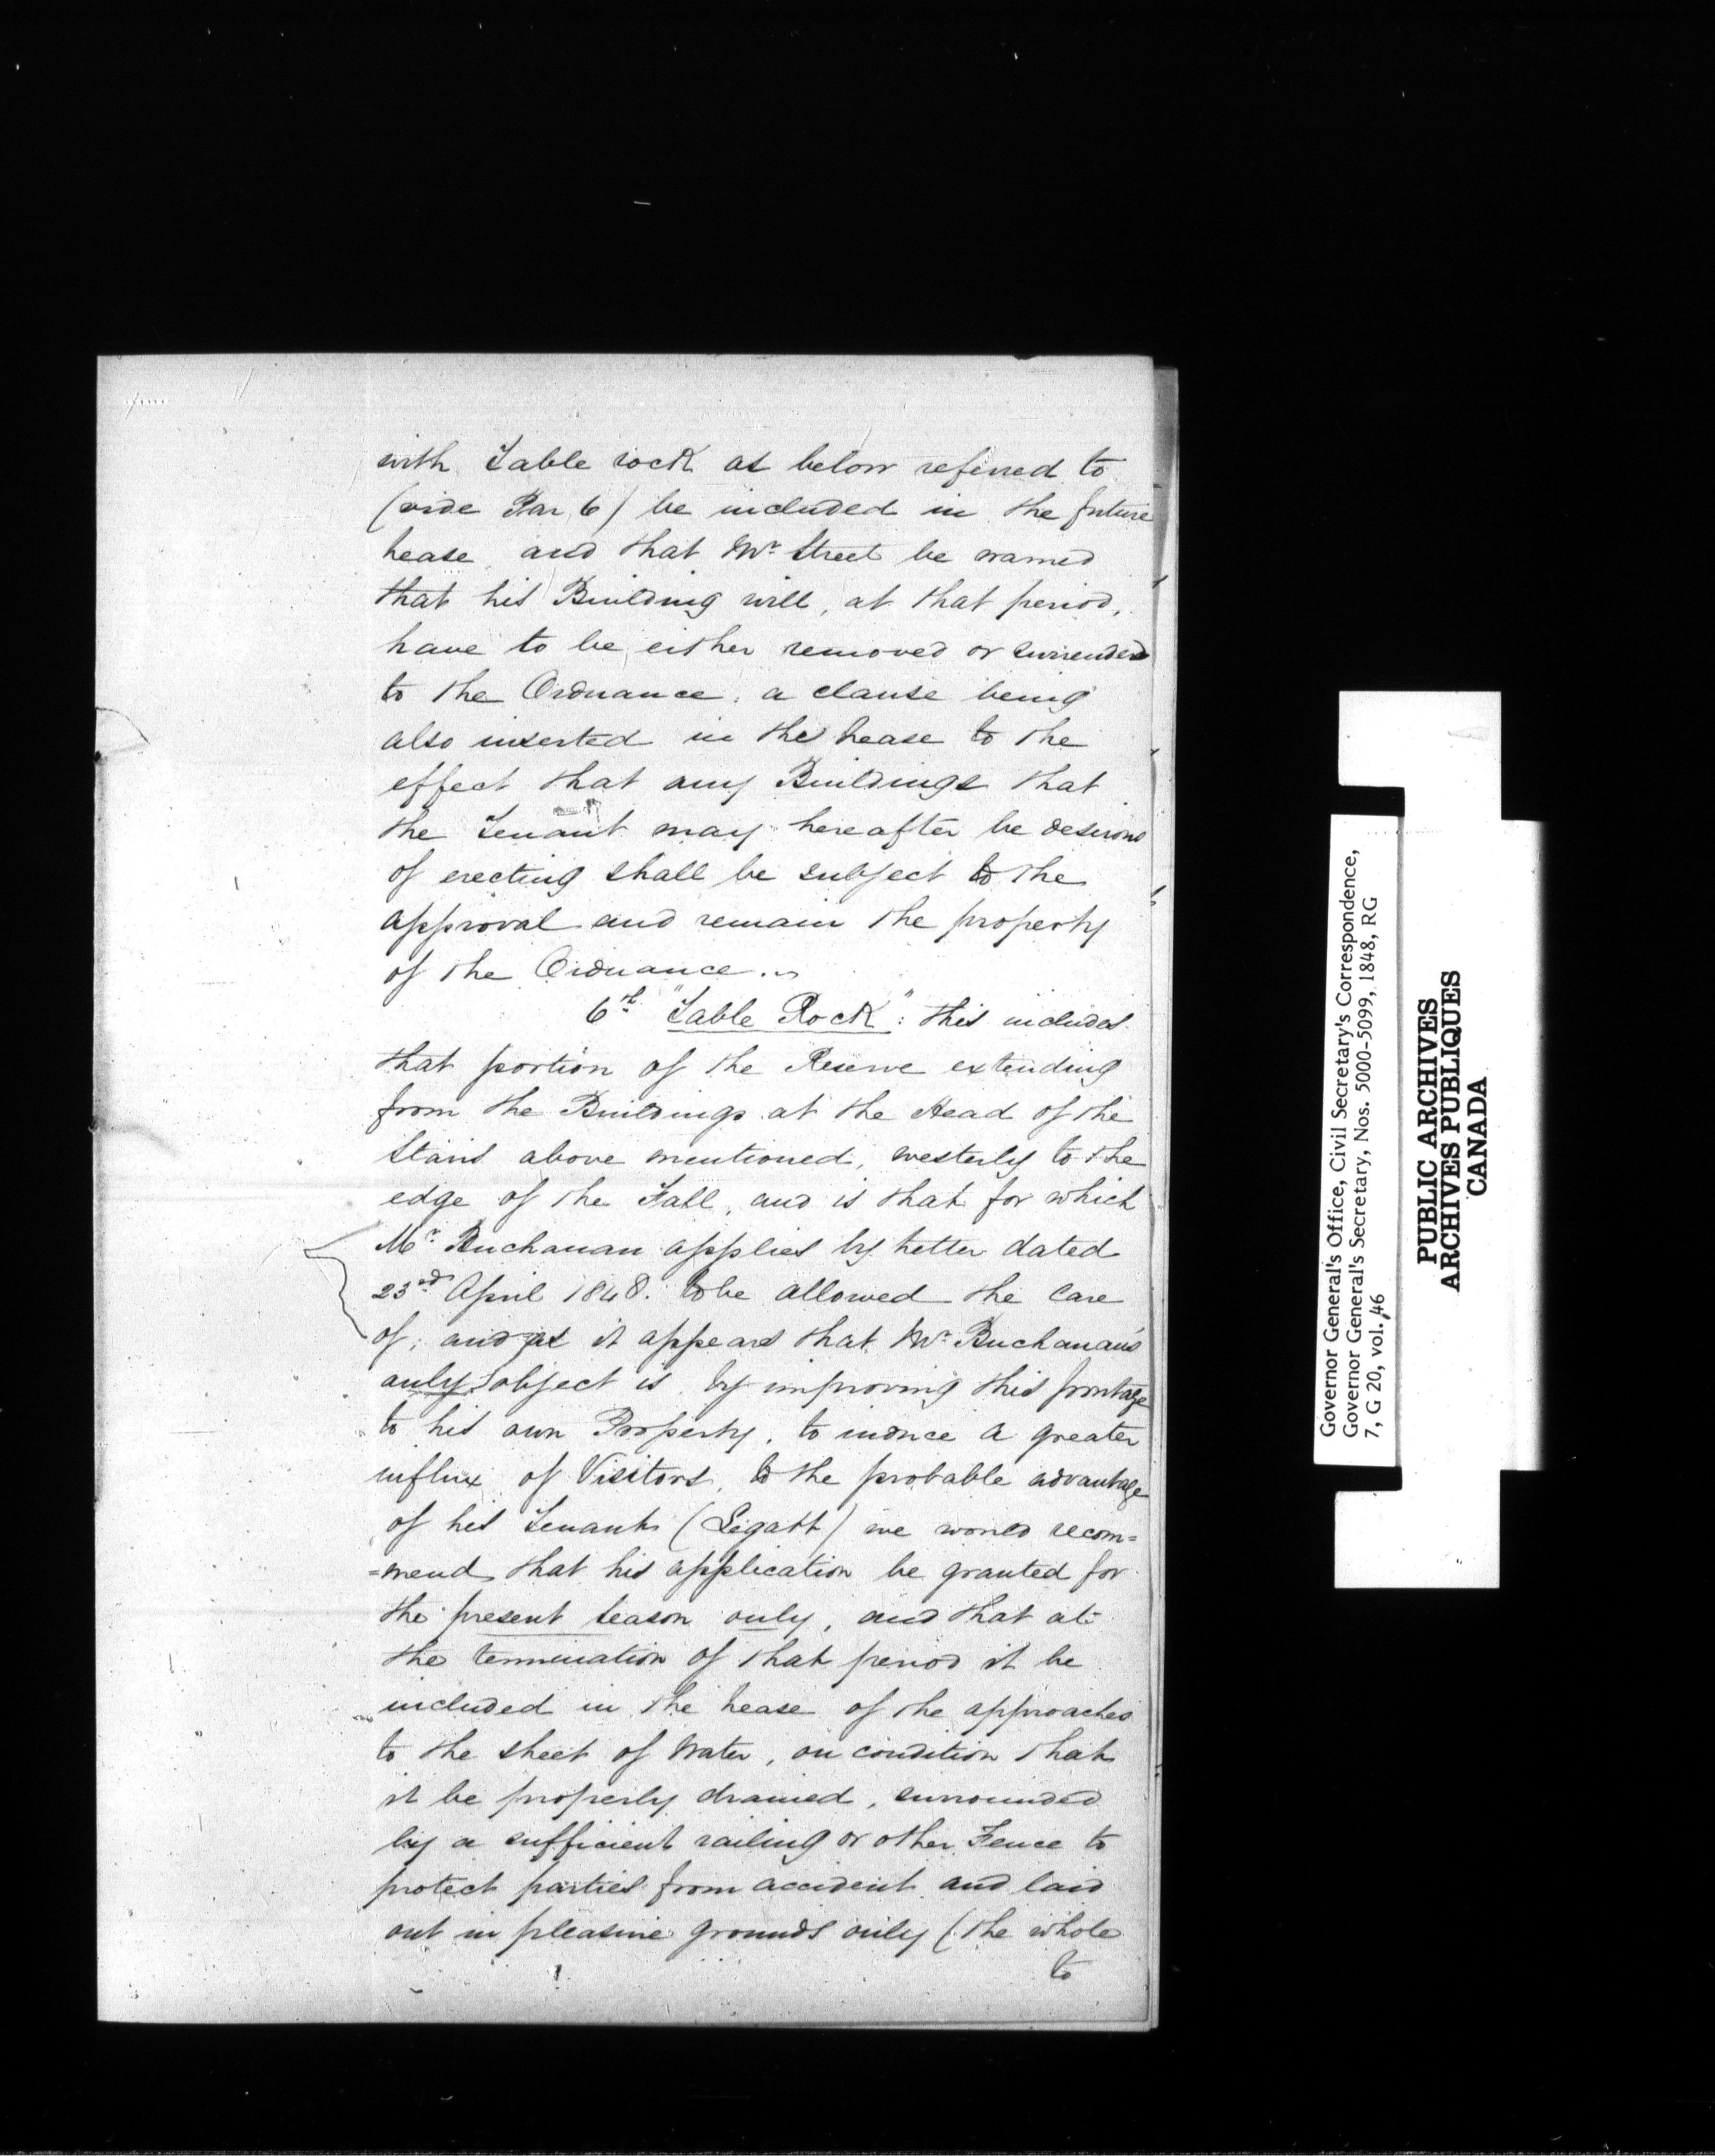 with Table rock as below referred to
(vide Par 6) be included in the future
Lease, and that Mr Street be warned
that his Building will, at that period,
have to be either removed or surrendered
to the Ordnance, a clause being
also inserted in the Lease to the
effect that any Buildings that
the Tenant may hereafter be desirous
of erecting shall be subject to the
approval and remain the property
of the Ordnance.
6th "Table Rock": this includes
that portion of the Reserve extending
from the Buildings at the Head of the
Stairs above mentioned, westerly to the
edge of the Fall, and is that for which
Mr Buchanan applies by letter dated
23rd April 1848. to be allowed the care
of; and as it appears that Mr Buchanan's
only object is, by improving this frontage
to his own Property, to induce a greater
influx of Visitors, to the probable advantage
of his Tenant (Legatt) we would recom=
=mend that his application be granted for
the present season only, and that at
the termination of that period it be
included in the Lease of the approaches
to the sheet of Water, on condition that
it be properly drained, surrounded
by a sufficient railing or other Fence to
protect parties from accident and laid
out in pleasure grounds only (the whole
to
Governor General's Office, Civil Secretary's Correspondence,
Governor General's Secretary, Nos. 5000-5099, 1848, RG
7, G 20, vol. 46
PUBLIC ARCHIVES
ARCHIVES PUBLIQUES
CANADA